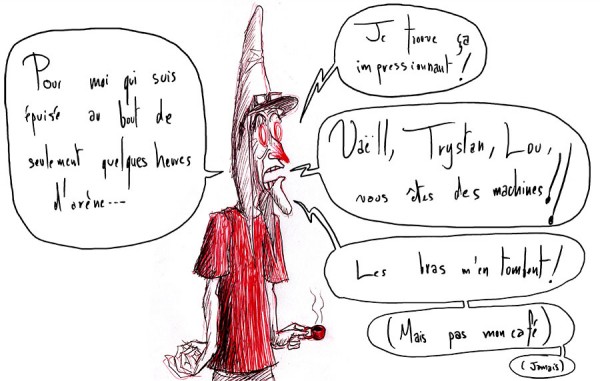 Pour moi qui suis
épuisé au bout de
seulement quelques heures
d'arène...
Je trouve ça
impressionnant !
Vaëll, Trystan, Lou,
vous êtes des machines !!
Les bras m'en tombent !
(Mais pas mon café)
(Jamais)